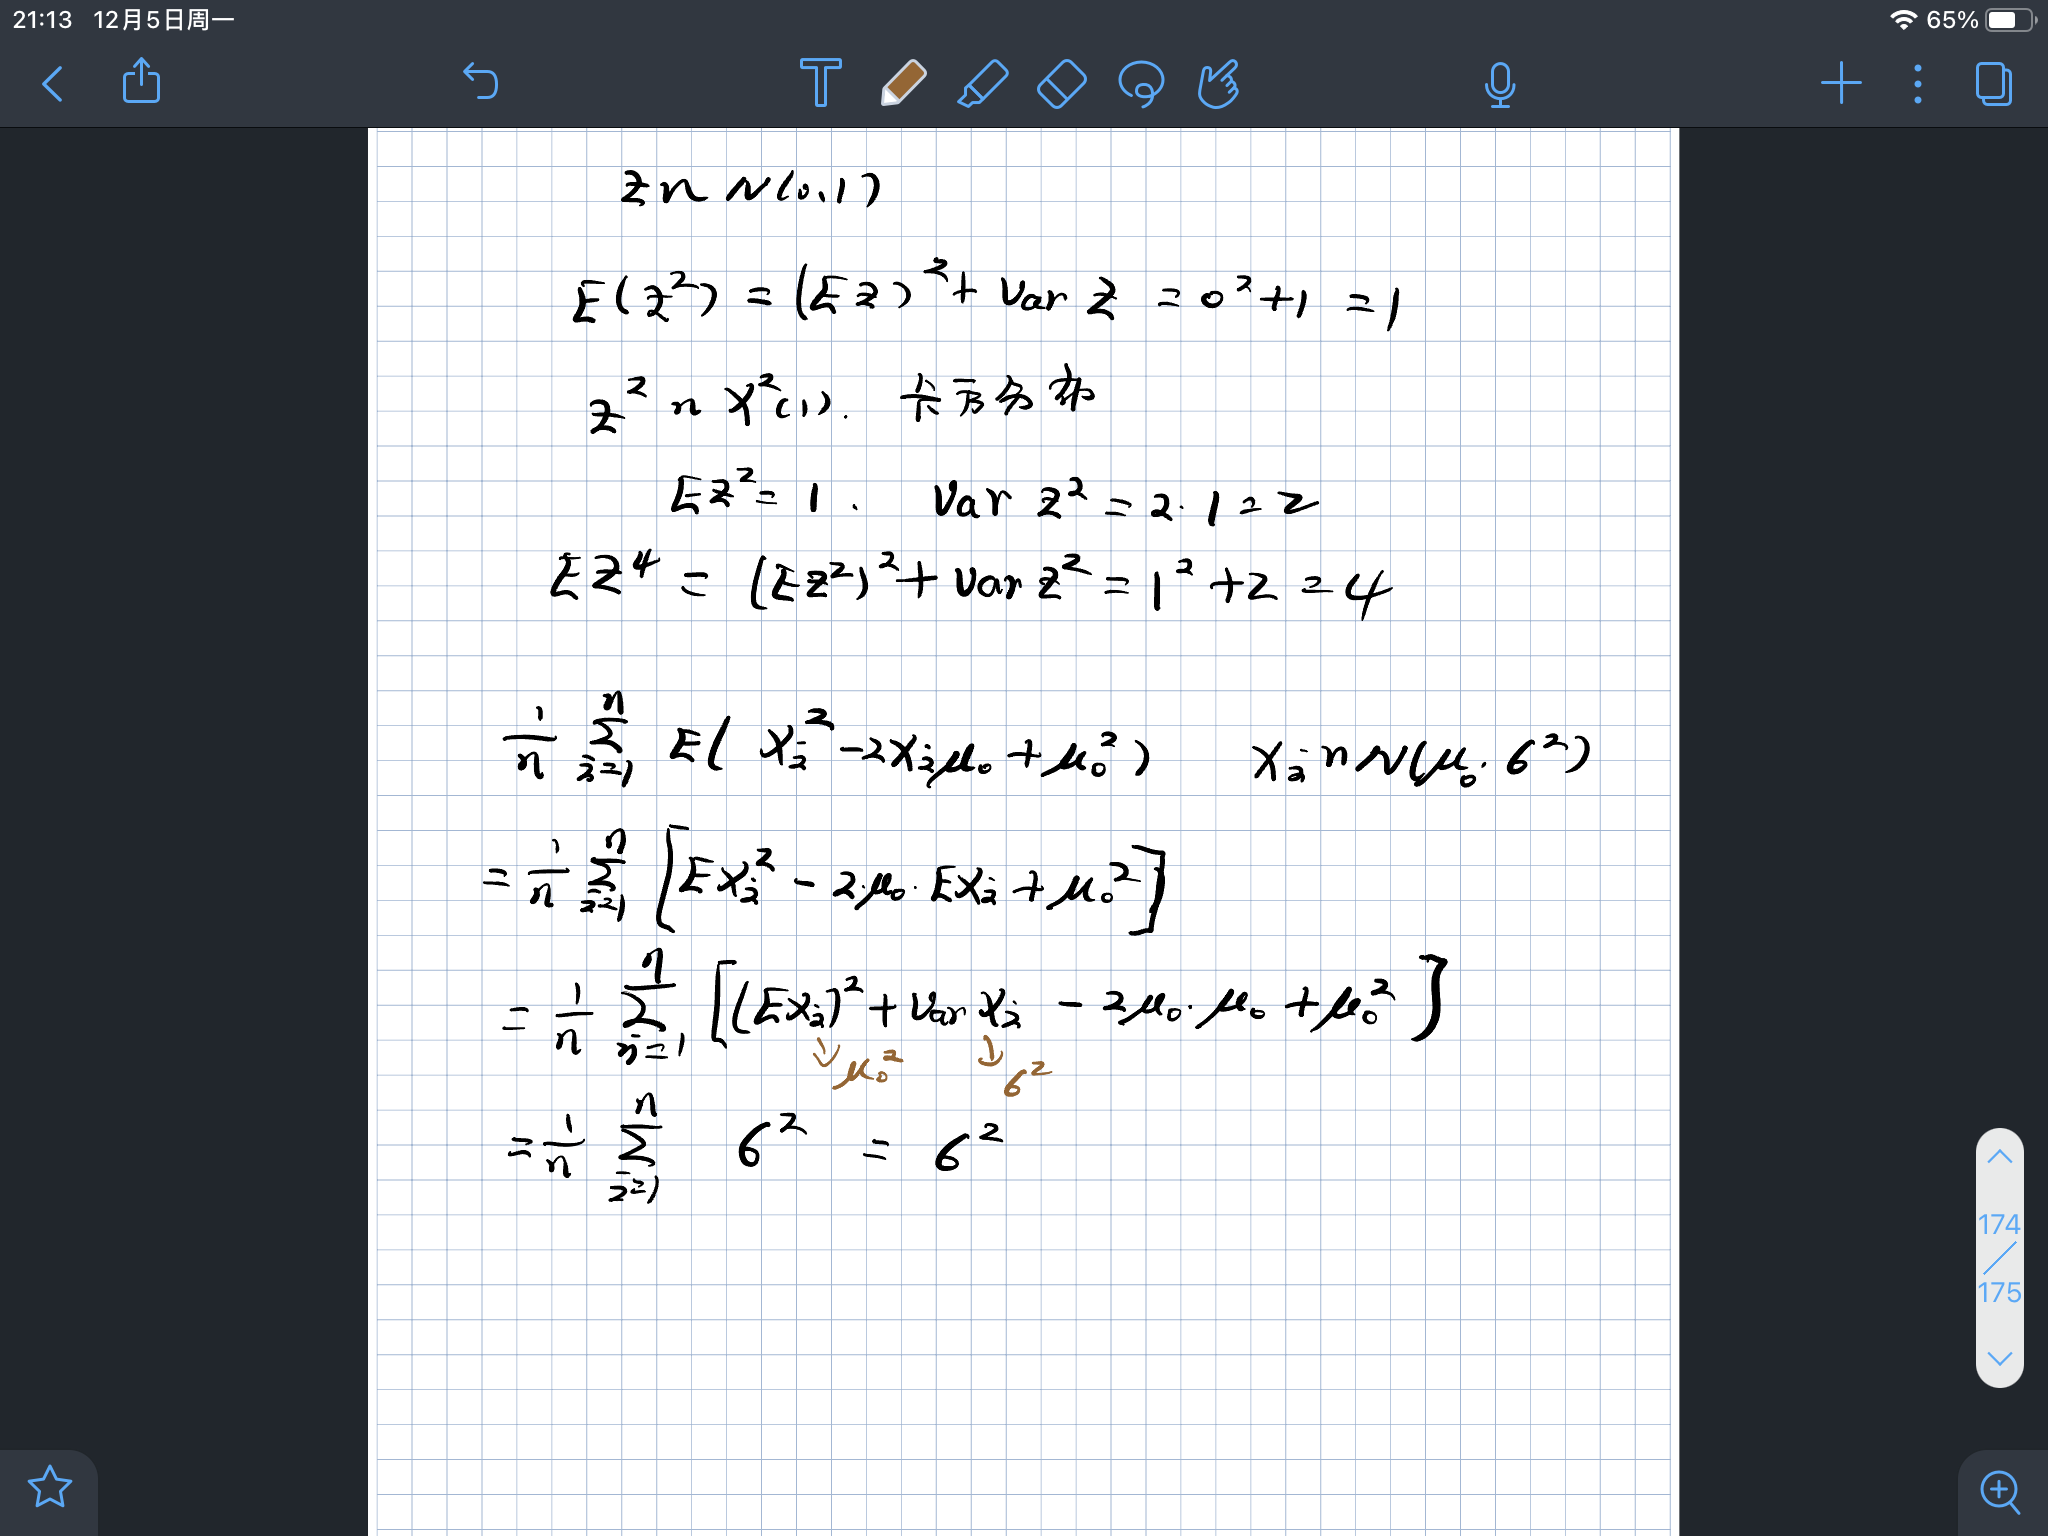 21:13 12月5日周一
65%
Z ~ N(0,1)
E(Z²) = (EZ)² + Var Z = 0² + 1 = 1
Z² ~ X²(1). 卡方分布
EZ² = 1. Var Z² = 2·1 = 2
EZ⁴ = (EZ²)² + Var Z² = 1² + 2 = 4
1/n Σ_{i=1}^{n} E( X_i² - 2X_iμ₀ + μ₀² ) X_i ~ N(μ₀. σ²)
= 1/n Σ_{i=1}^{n} [EX_i² - 2·μ₀·EX_i + μ₀²]
= 1/n Σ_{i=1}^{n} [(EX_i)² + Var X_i - 2μ₀·μ₀ + μ₀²]
↓ μ₀² ↓ σ²
= 1/n Σ_{i=1}^{n} σ² = σ²
174
/
175